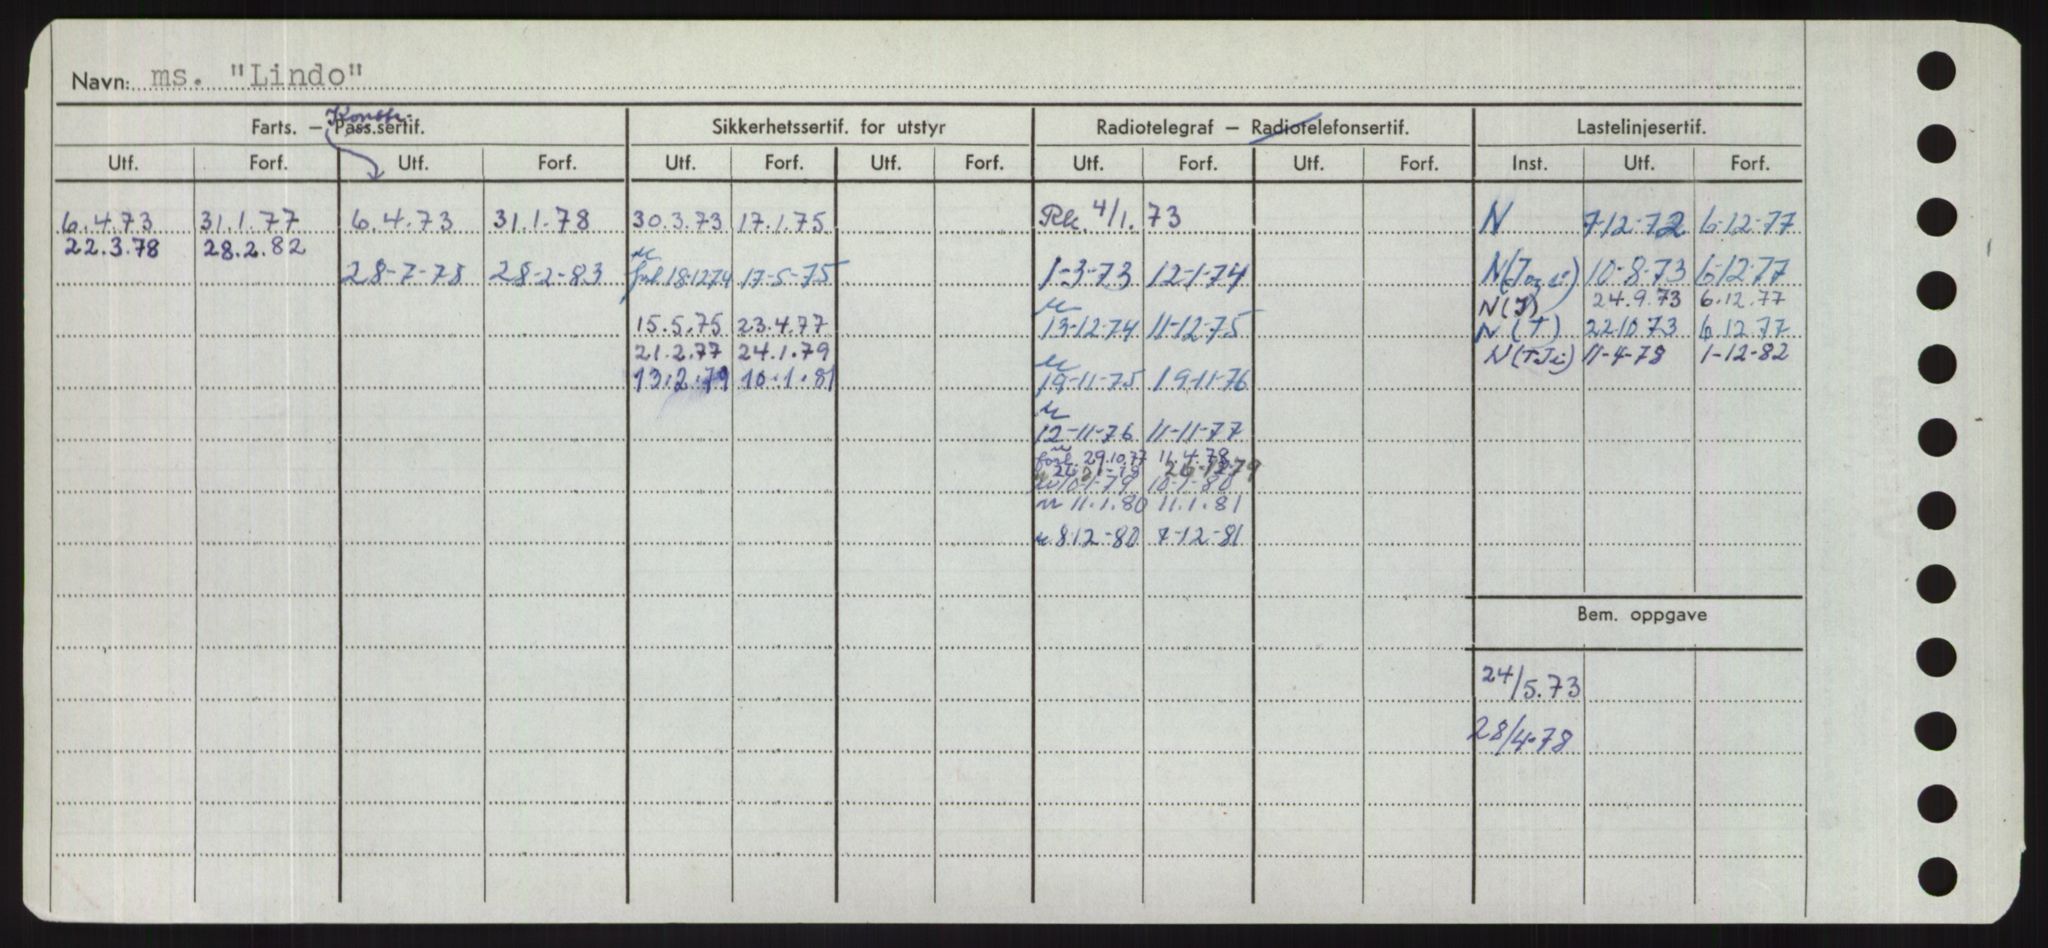 Navn: ms. "Lindo"
Konstr.
Farts. — Pass.sertif. Sikkerhetssertif. for utstyr Radiotelegraf — Radiotelefonsertif. Lastelinjesertif.
Utf. Forf. Utf. Forf. Utf. Forf. Utf. Forf. Utf. Forf. Utf. Forf. Inst. Utf. Forf.
6.4.73 31.1.77 6.4.73 31.1.78 30.3.73 17.1.75 Rk. 4/1. 73 N 7-12-72 6-12-77
22.3.78 28.2.82
28-7-78 28-2-83 18-12-74 17-5-75 1-3-73 12-1-74 10-8-73 6-12-77
24.9.73 6.12.77
15.5.75 23.4.77 13-12-74 11-12-75 N (T) 22.10.73 6.12.77
21.2.77 24.1.79 11-4-78 1-12-82
13.2.79 10.1.81 19-11-75 19-11-76
12-11-76 11-11-77
forl. 29.10.77 11.4.78
10-1-79 10-1-80
11.1.80 11.1.81
8-12-80 7-12-81
Bem. oppgave
24/5.73
28/4-78